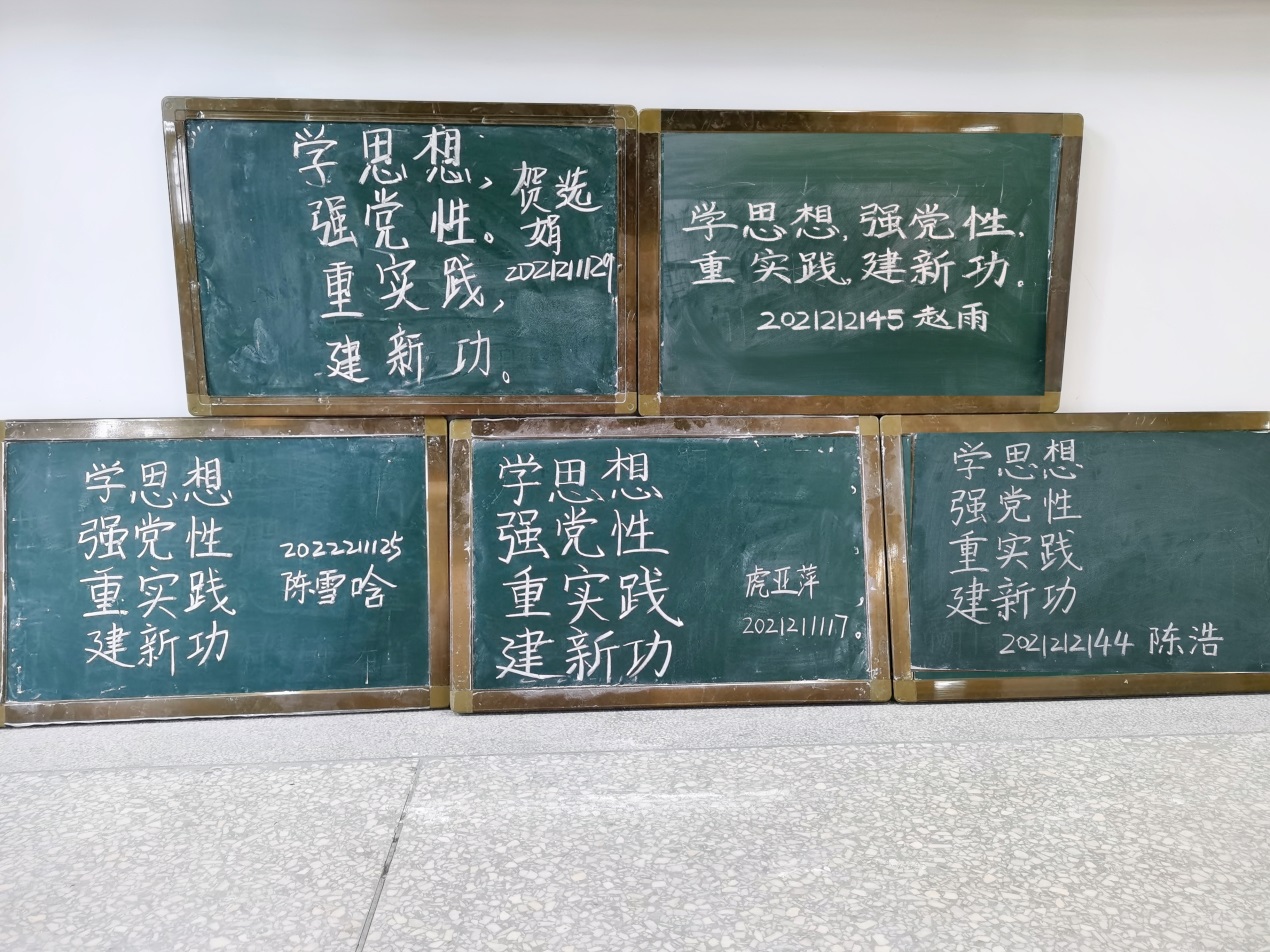 学思想,
强党性。
重实践,
建新功。
贺选
娟
2021211129
学思想,强党性.
重实践,建新功。
2021212145赵雨
学思想
强党性
重实践
建新功
2022221125
陈雪晗
学思想,
强党性,
重实践,
建新功。
虎亚萍
2021211117
学思想
强党性
重实践
建新功
2021212144 陈浩